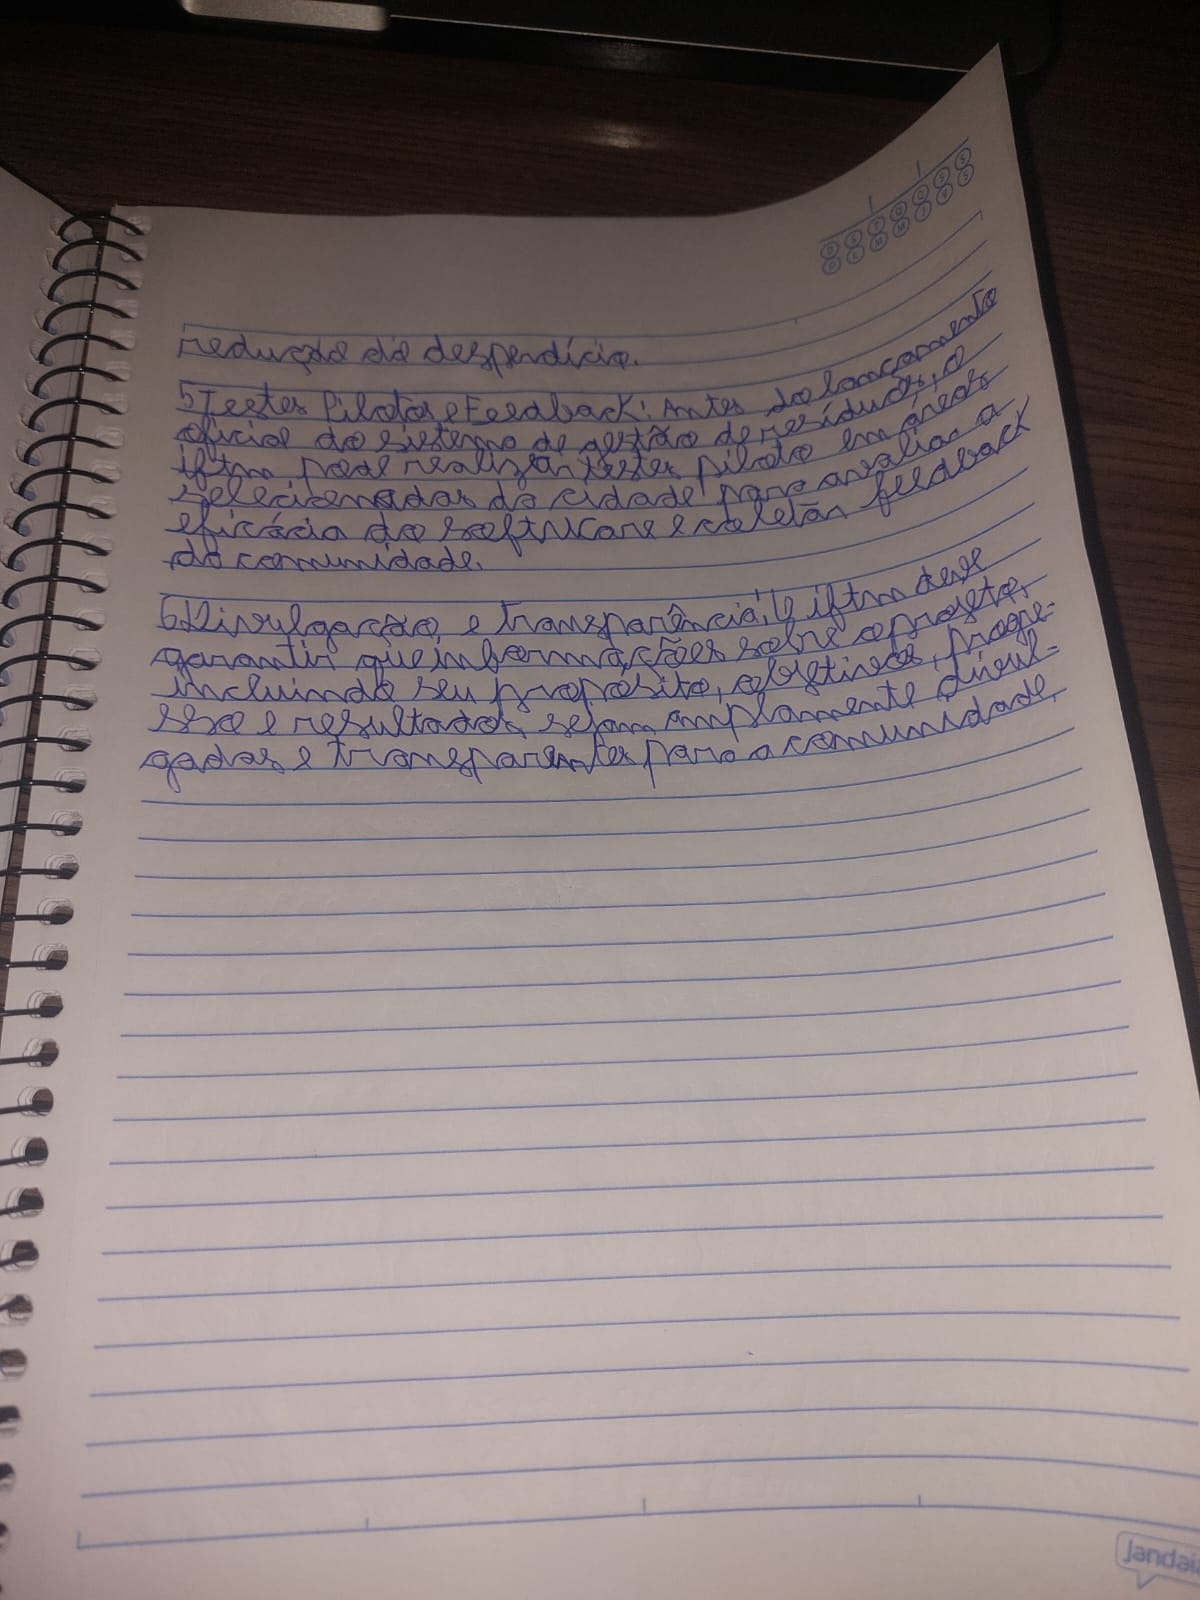 D S T Q Q S S
D L M M J V S
redução do desperdício.
5 Testes Pilotos e Feedback: Antes do lançamento
oficial do sistema de gestão de resíduos, o
iftm pode realizar testes piloto em áreas
selecionadas da cidade para avaliar a
eficácia do software e coletar feedback
da comunidade.
6 Divulgação e transparência: O iftm deve
garantir que informações sobre o projeto,
incluindo seu propósito, objetivos, progre-
sso e resultados, sejam amplamente divul-
gadas e transparentes para a comunidade.
Jandaia